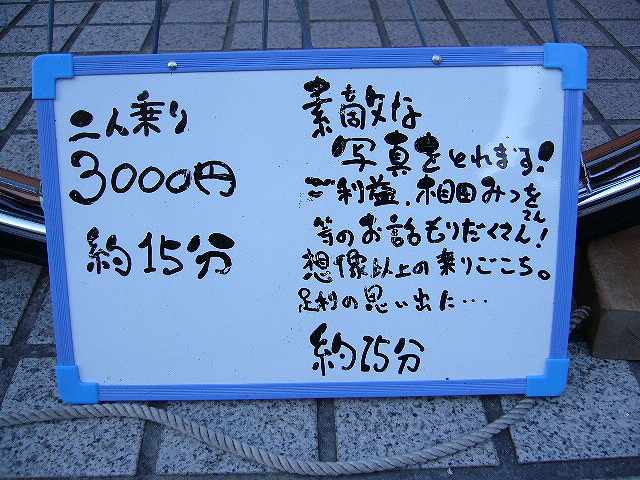 二人乗り
3000円
約15分
素敵な
写真をとれます!
ご利益、相田みつを
さん
等のお話もりだくさん!
想像以上の乗りごこち。
足利の思い出た…
約15分